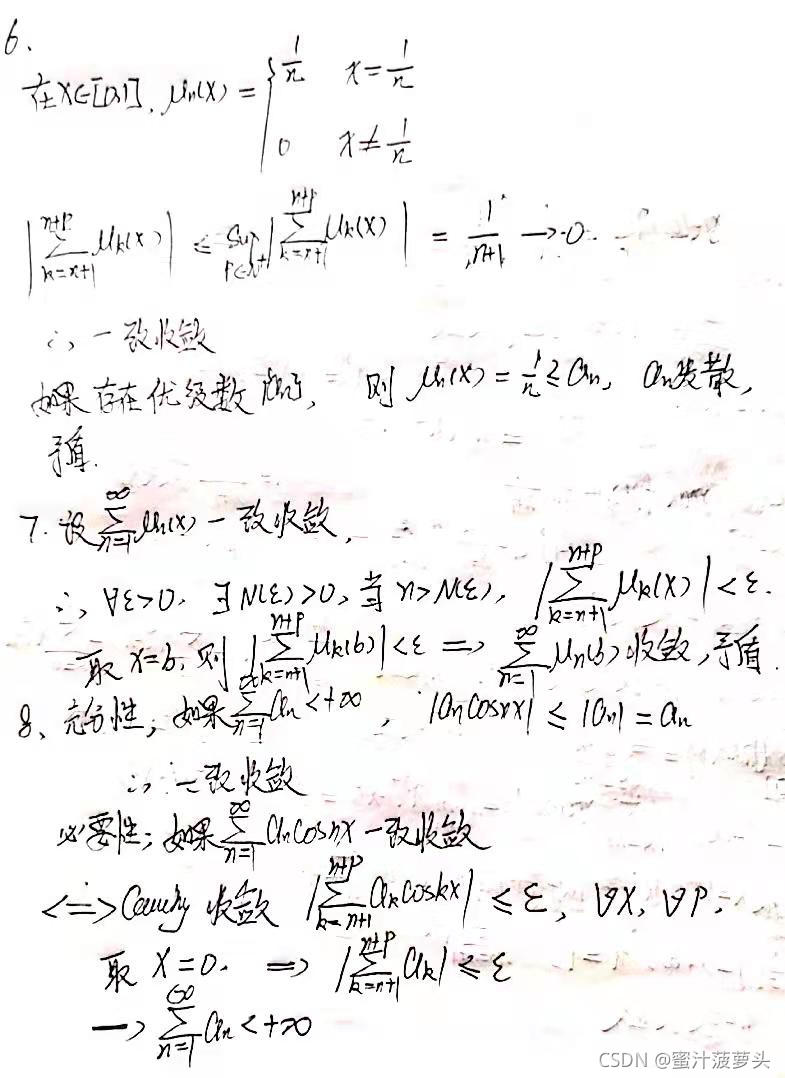 6、
在x∈[0,1], μn(x) = { 1/n x = 1/n
0 x ≠ 1/n
|∑_{k=n+1}^{n+p} μk(x)| ≤ sup_{p∈N+} |∑_{k=n+1}^{n+p} μk(x)| = 1/(n+1) → 0.
∴ 一致收敛
如果存在优级数, 则 μn(x) = 1/n ≤ an, an发散,
矛盾.
7. 设 ∑_{n=1}^{∞} μn(x) 一致收敛,
∴ ∀ε>0. ∃N(ε)>0, 当 n>N(ε), |∑_{k=n+1}^{n+p} μk(x)| < ε.
取 x=b, 则 |∑_{k=n+1}^{n+p} μk(b)| < ε ⟹ ∑_{n=1}^{∞} μn(b) 收敛, 矛盾.
8、充分性; 如果 ∑_{n=1}^{∞} an < +∞, |an cosnx| ≤ |an| = an
∴ 一致收敛
必要性; 如果 ∑_{n=1}^{∞} an cosnx 一致收敛
<=> Cauchy 收敛 |∑_{k=n+1}^{n+p} ak coskx| ≤ ε, ∀x, ∀p,
取 x=0. ⟹ |∑_{k=n+1}^{n+p} ak| ≤ ε
→ ∑_{n=1}^{∞} an < +∞
CSDN @蜜汁菠萝头